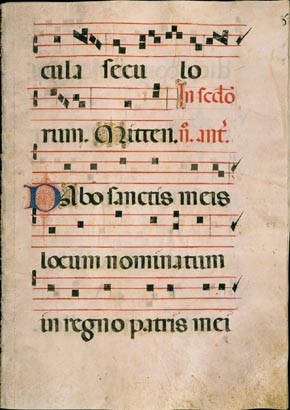 cula secu lo
In secdo
rum. Mitten. ij. ant.
Dabo sanctis meis
locum nominatum
in regno patris mei